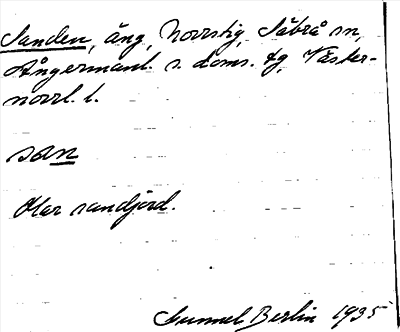 Sanden, äng, Norrstig, Säbrå sn,
Ångermanl. s. doms. fg, Väster-
norrl. l.
san
Har sandjord.
Gunnel Berlin 1935